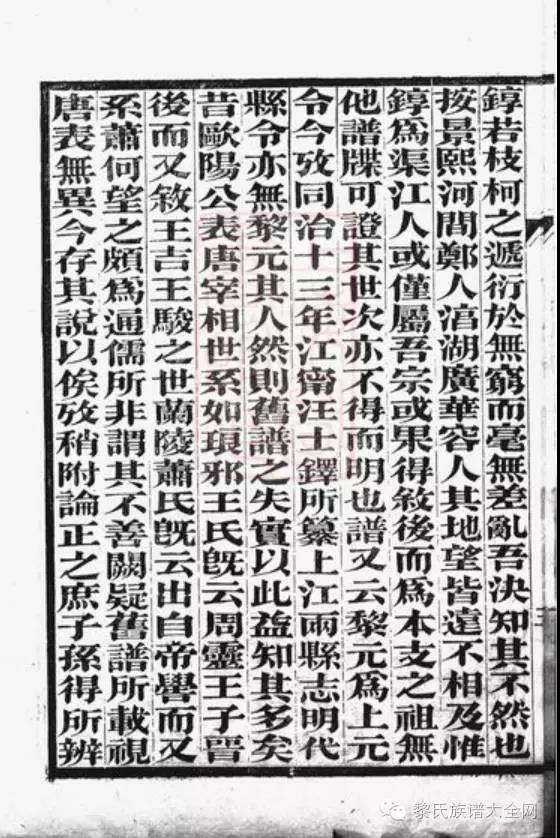 錞若枝柯之遞衍於無窮而毫無差亂吾決知其不然也
按景熙河間鄭人涫湖廣華容人其地望皆遠不相及惟
錞為渠江人或僅屬吾宗或果得敘後而為本支之祖無
他譜牒可證其世次亦不得而明也譜又云黎元為上元
令今攷同治十三年江甯汪士鐸所纂上江兩縣志明代
縣令亦無黎元其人然則舊譜之失實以此益知其多矣
昔歐陽公表唐宰相世系如琅邪王氏旣云周靈王子晉
後而又敘王吉王駿之世蘭陵蕭氏旣云出自帝嚳而又
系蕭何望之頗為通儒所非謂其不善闕疑舊譜所載視
唐表無異今存其說以俟攷稍附論正之庶子孫得所辨
黎氏族谱大全网